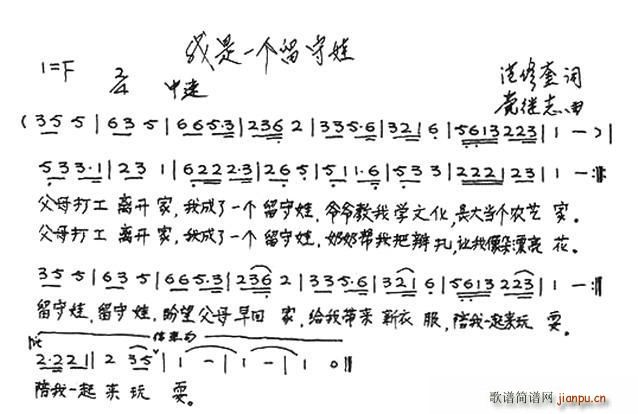 我是一个留守娃
1=F 2/4 中速 范修奎 词
党继志 曲
(3 5 5 | 6 3 5 | 6 6 5·3 | 2 3 6 2 | 3 3 5·6 | 3 2 1 6 | 5 6 1 3 2 2 3 | 1 — ) |
5 3 3·1 | 2 3 1 | 6 2 2 2·3 | 2 6 5 | 5 1 1·6 | 5 3 3 | 2 2 2 1 2 3 | 1 — :‖
父母打工 离开 家,我成了一个 留守娃,爷爷教我学文化,长大当个农艺 家。
父母打工 离开 家,我成了一个 留守娃,奶奶帮我把辫 扎,让我像朵漂亮 花。
3 5 5 | 6 3 5 | 6 6 5·3 | 2 3 6 2 | 3 3 5·6 | 3 2 1 6 | 5 6 1 3 2 2 3 | 1 — :‖
留守娃,留守 娃,盼望父母早回 家,给我带来 新衣 服,陪我一起来玩 耍。
结束句
2·2 2 1 | 2 3 5 | 1 — | 1 — | 1 0 ‖
陪我一起 来 玩 耍。
歌谱简谱网
jianpu.cn